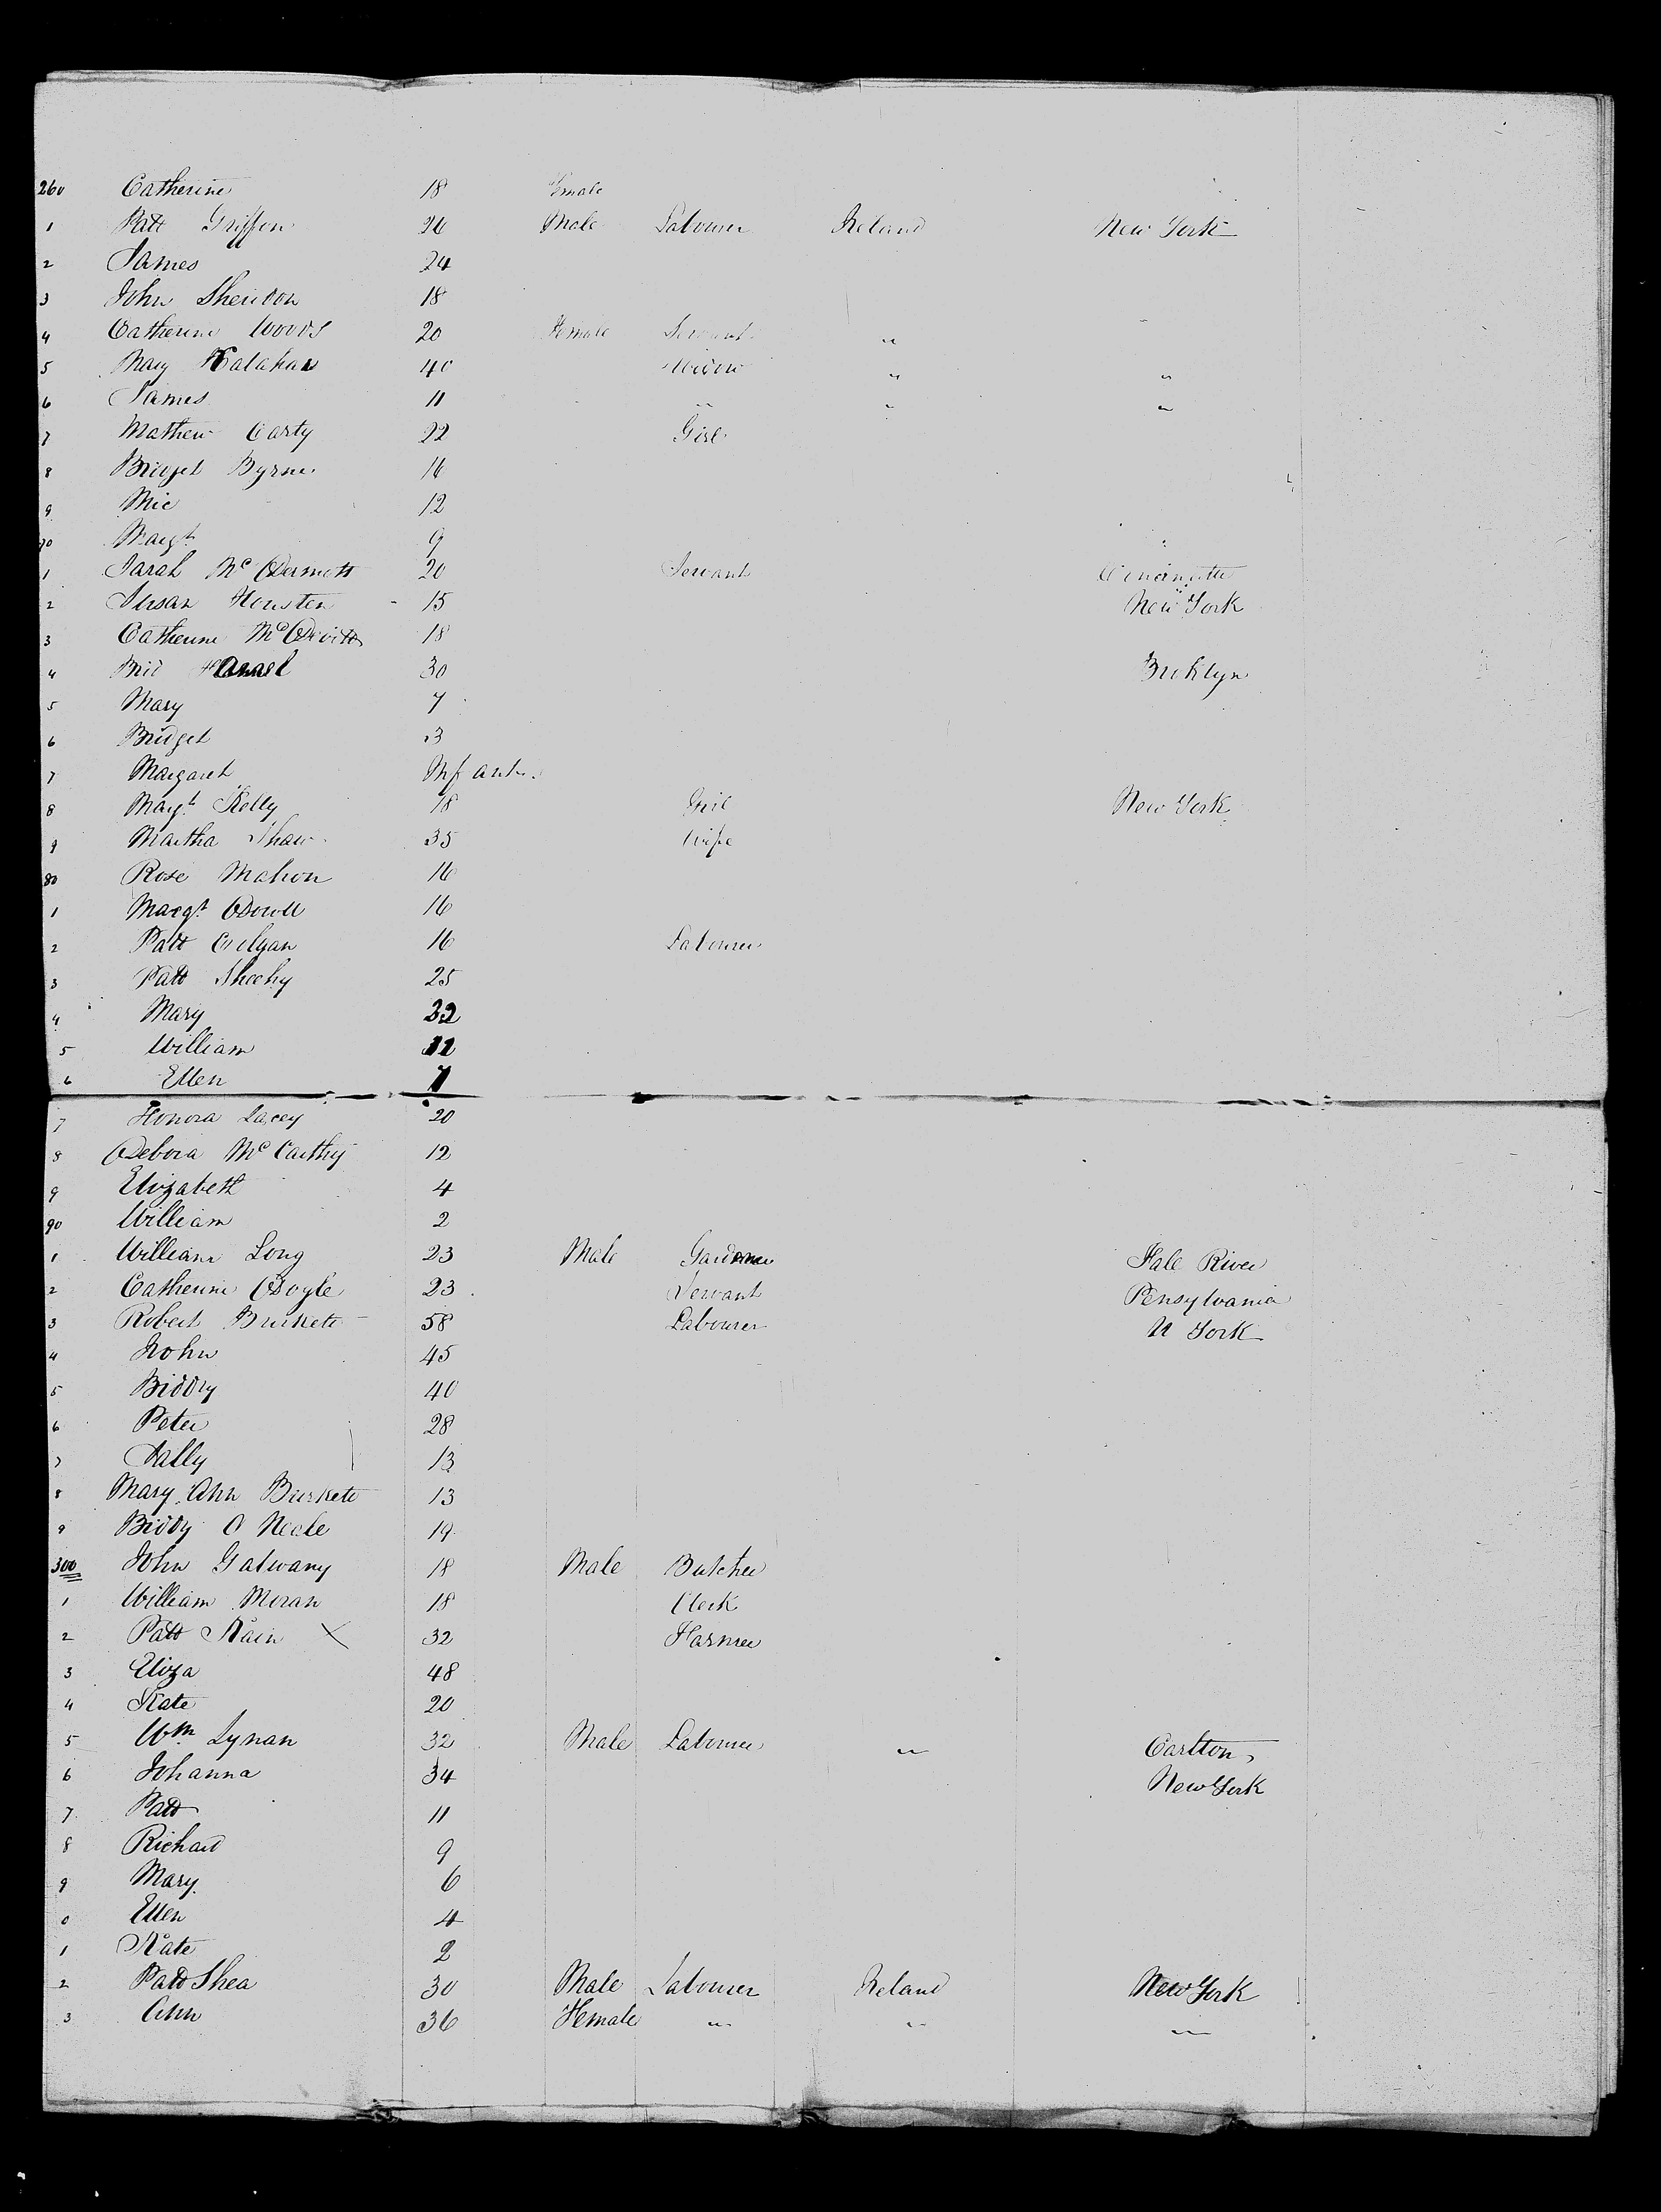 260 Catherine 18 Female
1 Patt Griffon 26 Male Labourer Ireland New York
2 James 24
3 John Sheridon 18
4 Catherine Woods 20 Female Servant "
5 Mary 40 Widow " "
6 James 11 " " "
7 Mathew Carty 22 Girl
8 Bridget Byrne 16
9 Mic 12
70 Margt 9
1 Sarah McDermott 20 Servant Cincinatti
2 Susan Housten 15 New York
3 Catherine McDevitt 18
4 Brid 30 Broklyn
5 Mary 7
6 Bridget 3
7 Margaret Infant
8 Margt Kelly 18 Girl New York
9 Martha Shaw 35 Wife
80 Rose Mahon 16
1 Margt Dowll 16
2 Patt Gilgan 16 Labourer
3 Patt Sheehy 25
4 Mary 32
5 William 11
6 Ellen 7
7 Honora Lacey 20
8 Debora McCarthy 12
9 Elizabeth 4
90 William 2
1 William Long 23 Male Gardner Fale River
2 Catherine Doyle 23 Servant Pensylvania
3 Robert Burkett 58 Labourer N York
4 John 45
5 Biddy 40
6 Peter 28
7 Sally 13
8 Mary Ann Burkett 13
9 Biddy O Neale 19
300 John Galwany 18 Male Butcher
1 William Moran 18 Clerk
2 Patt Kain X 32 Farmer
3 Eliza 48
4 Kate 20
5 Wm Lynan 32 Male Labourer " Carlton
6 Johanna 34 New York
7 Patt 11
8 Richard 9
9 Mary 6
0 Ellen 4
1 Kate 2
2 Patt Shea 30 Male Labourer Ireland New York
3 Ann 36 Female " " "